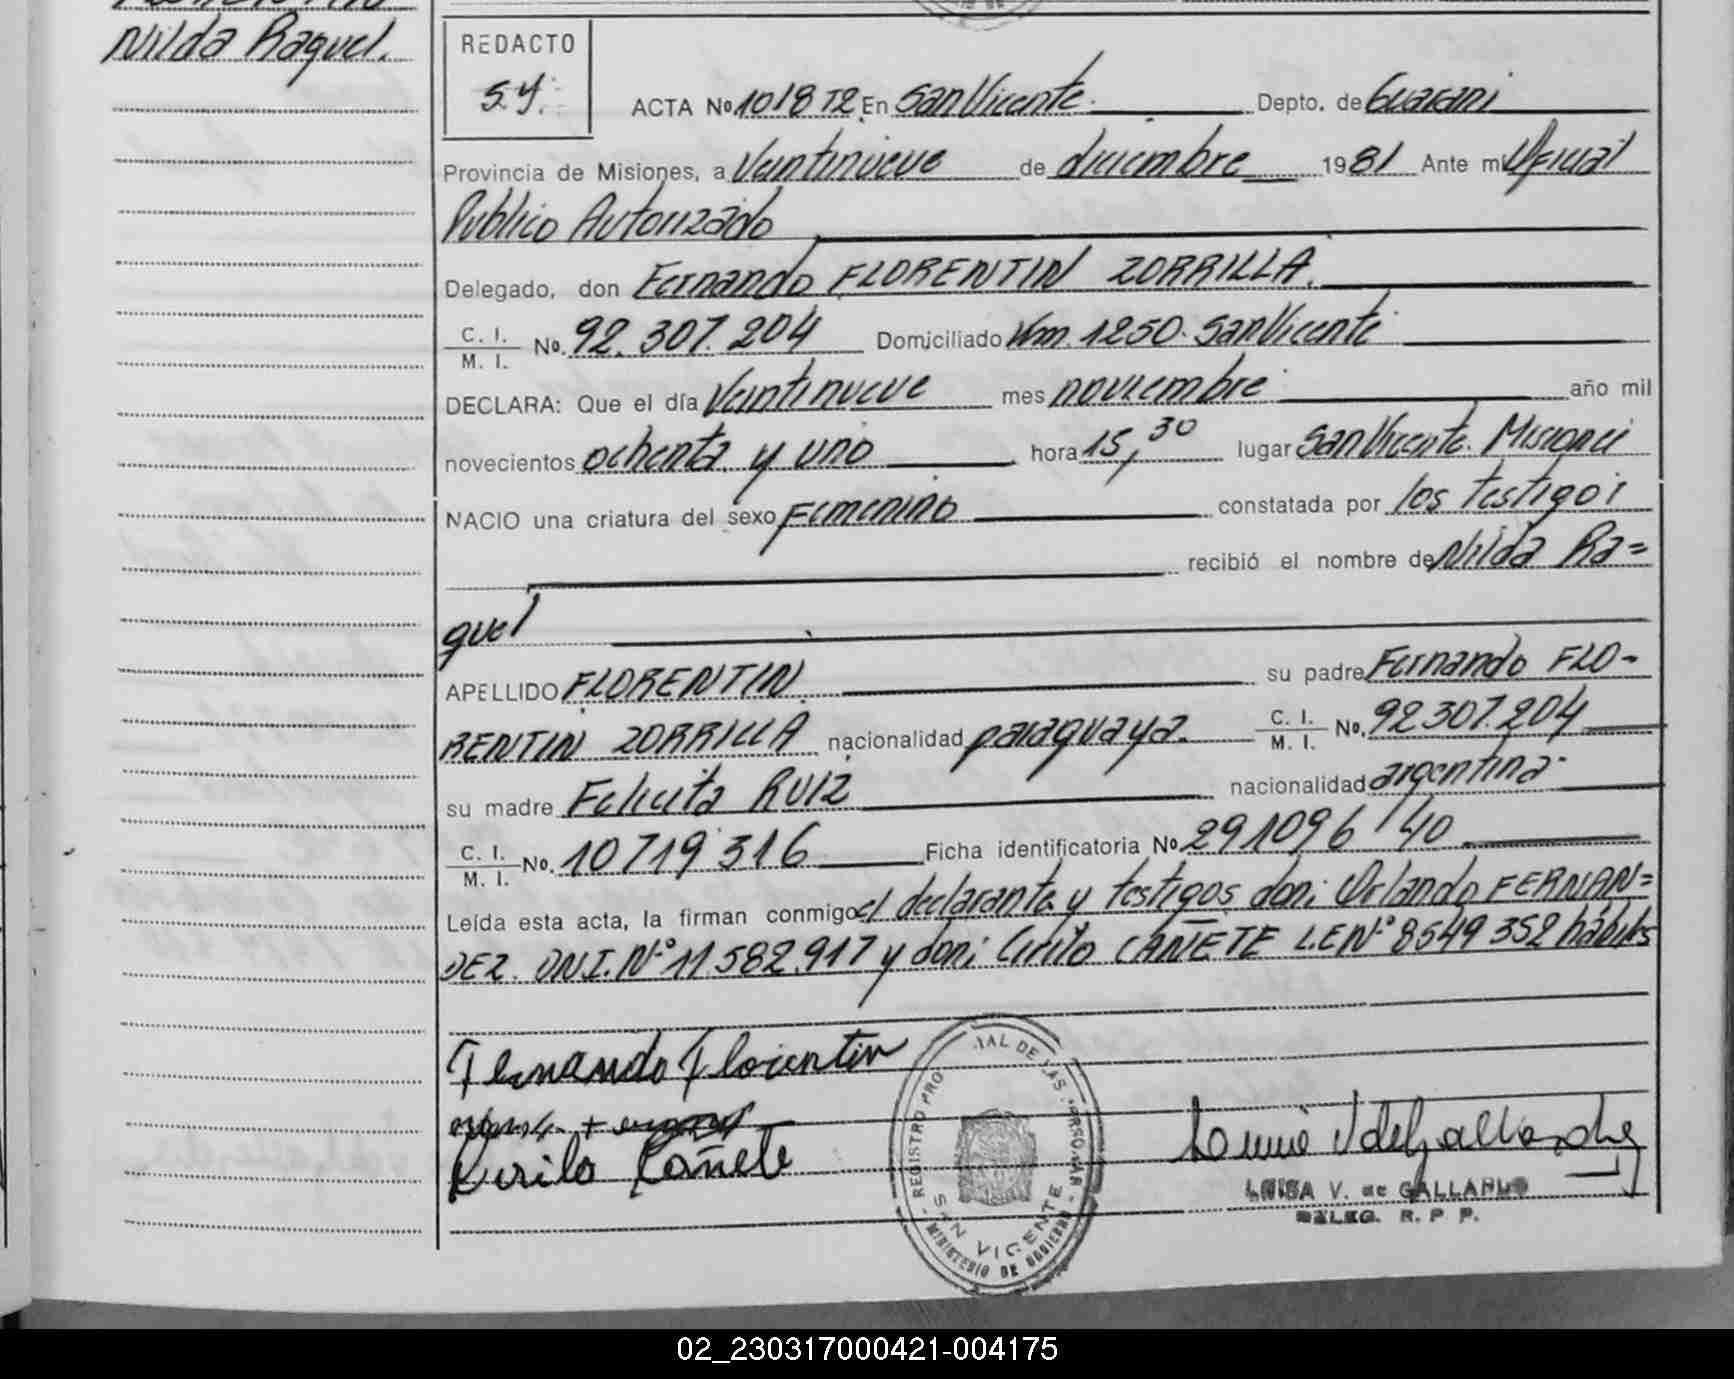 Nilda Raquel.
REDACTO
S.Y.
ACTA No 1018 T2 En San Vicente. Depto. de Guarani
Provincia de Misiones, a Veintinueve de diciembre 1981 Ante mi Oficial
Publico Autorizado
Delegado, don Fernando FLORENTIN ZORRILLA.
C. I.
M. I. No. 92.307.204 Domiciliado Km. 1250. San Vicente
DECLARA: Que el día Veintinueve mes noviembre año mil
novecientos ochenta y uno hora 15,30 lugar San Vicente. Misiones
NACIO una criatura del sexo Femenino constatada por los testigos
recibió el nombre de Nilda Ra=
quel
APELLIDO FLORENTIN su padre Fernando FLO-
RENTIN ZORRILLA nacionalidad paraguaya. C. I.
M. I. No. 92.307.204
su madre Felicita RUIZ nacionalidad argentina.
C. I.
M. I. No. 10719316 Ficha identificatoria No 291096/40
Leída esta acta, la firman conmigo el declarante y testigos don: Orlando FERNAN=
DEZ. DNI. N° 11.582.917 y don: Cirilo CAÑETE L.E N° 8549352 hábiles
Fernando Florentin
Kirilo Cañete
REGISTRO PRO IAL DE LAS PERSONAS
SAN VICENTE
MINISTERIO DE GOBIERNO
LUISA V. de GALLARDO
DELEG. R. P. P.
02_230317000421-004175